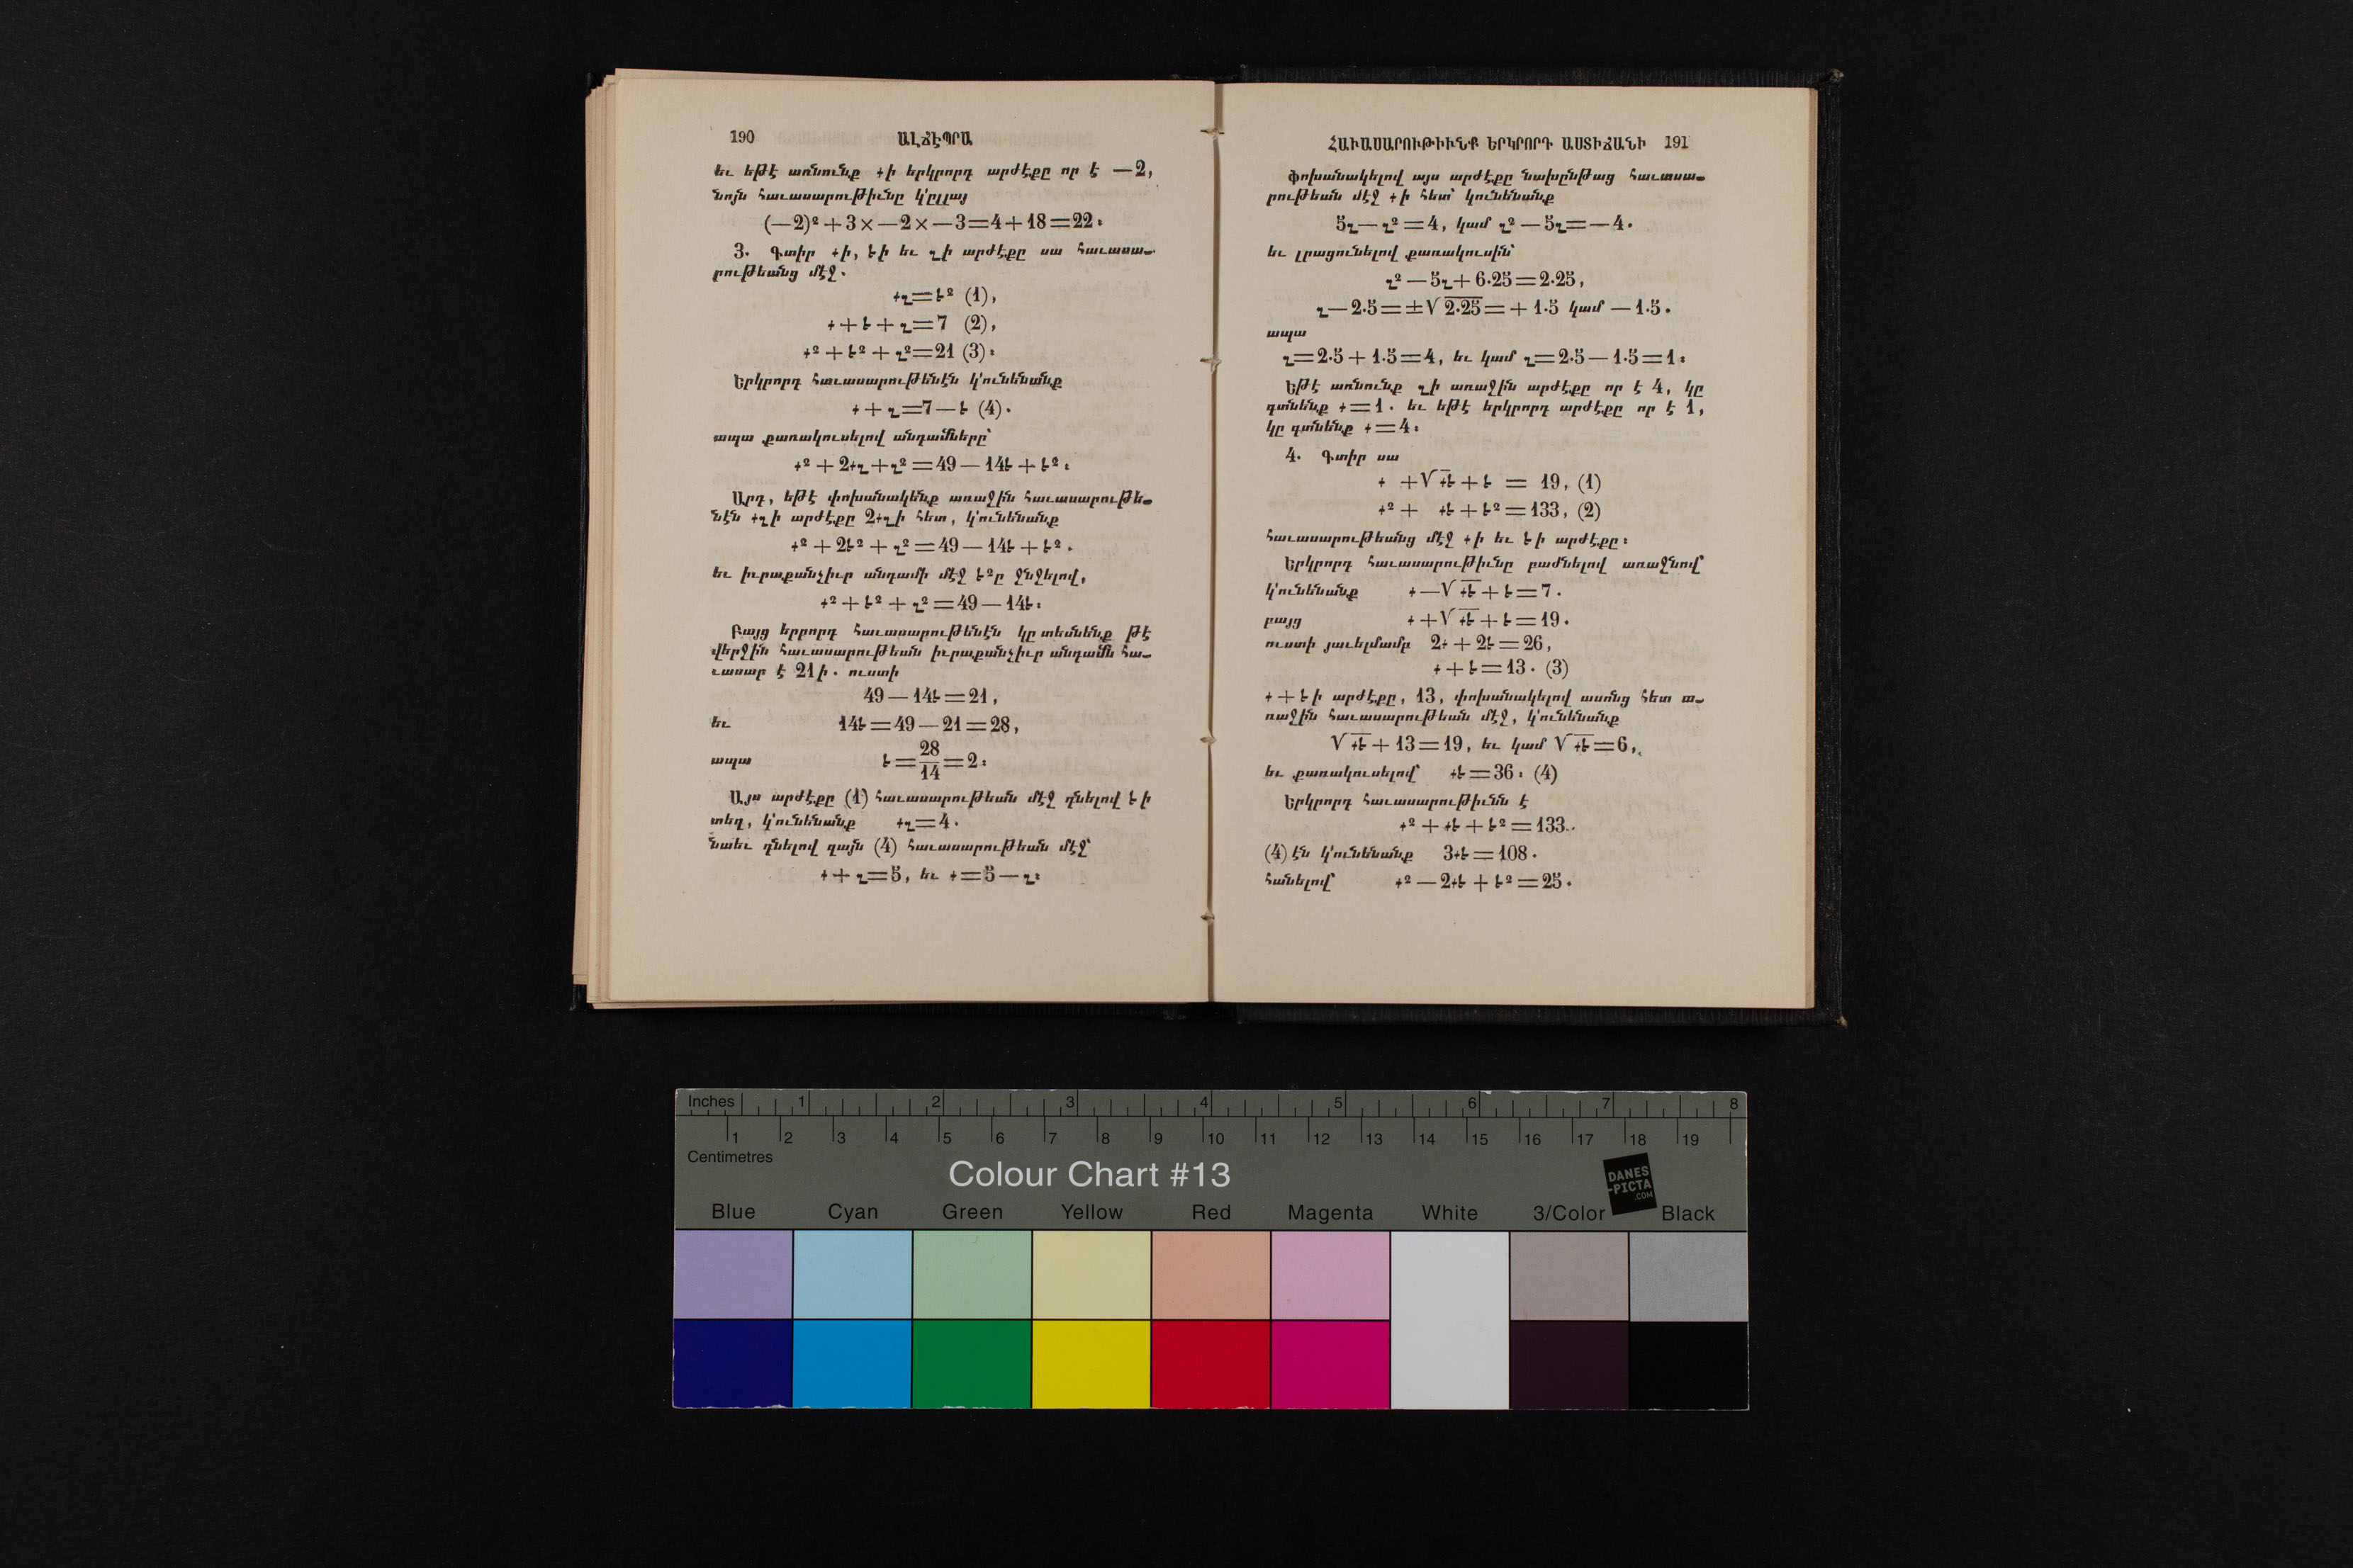 190 ԱԼՃԷՊՐԱ
եւ եթէ առնունք ւի երկրորդ արժէքը որ է —2,
նոյն հաւասարութիւնը կ'ըլլայ
(—2)² + 3 × —2 × —3 = 4 + 18 = 22։
3. Գտիր ւի, եի եւ ղի արժէքը սա հաւասա-
րութեանց մէջ.
ւղ = ե² (1),
ւ + ե + ղ = 7 (2),
ւ² + ե² + ղ² = 21 (3)։
Երկրորդ հաւասարութենէն կ'ունենանք
ւ + ղ = 7 — ե (4).
ապա քառակուսելով անդամները՝
ւ² + 2ւղ + ղ² = 49 — 14ե + ե²։
Արդ, եթէ փոխանակենք առաջին հաւասարութե-
նէն ւղի արժէքը 2ւղի հետ, կ'ունենանք
ւ² + 2ե² + ղ² = 49 — 14ե + ե².
եւ իւրաքանչիւր անդամի մէջ ե²ը ջնջելով,
ւ² + ե² + ղ² = 49 — 14ե։
Բայց երրորդ հաւասարութենէն կը տեսնենք թէ
վերջին հաւասարութեան իւրաքանչիւր անդամն հա-
ւասար է 21ի. ուստի
49 — 14ե = 21,
եւ 14ե = 49 — 21 = 28,
ապա ե = 28/14 = 2։
Այս արժէքը (1) հաւասարութեան մէջ դնելով եի
տեղ, կ'ունենանք ւղ = 4.
նաեւ դնելով զայն (4) հաւասարութեան մէջ՝
ւ + ղ = 5, եւ ւ = 5 — ղ։
ՀԱՒԱՍԱՐՈՒԹԻՒՆՔ ԵՐԿՐՈՐԴ ԱՍՏԻՃԱՆԻ 191
Փոխանակելով այս արժէքը նախընթաց հաւասա-
րութեան մէջ ւի հետ՝ կունենանք
5ղ — ղ² = 4, կամ ղ² — 5ղ = — 4.
եւ լրացունելով քառակուսին՝
ղ² — 5ղ + 6.25 = 2.25,
ղ — 2.5 = ±√2.25 = + 1.5 կամ — 1.5.
ապա
ղ = 2.5 + 1.5 = 4, եւ կամ ղ = 2.5 — 1.5 = 1։
Եթէ առնունք ղի առաջին արժէքը որ է 4, կը
գտնենք ւ = 1. եւ եթէ երկրորդ արժէքը որ է 1,
կը գտնենք ւ = 4։
4. Գտիր սա
ւ + √ւե + ե = 19, (1)
ւ² + ւե + ե² = 133, (2)
հաւասարութեանց մէջ ւի եւ եի արժէքը։
Երկրորդ հաւասարութիւնը բաժնելով առաջնով՝
կ'ունենանք ւ — √ւե + ե = 7.
բայց ւ + √ւե + ե = 19.
ուստի յաւելմամբ 2ւ + 2ե = 26,
ւ + ե = 13. (3)
ւ + եի արժէքը, 13, փոխանակելով ասոնց հետ ա-
ռաջին հաւասարութեան մէջ, կ'ունենանք
√ւե + 13 = 19, եւ կամ √ւե = 6,
եւ քառակուսելով՝ ւե = 36։ (4)
Երկրորդ հաւասարութիւնն է
ւ² + ւե + ե² = 133.
(4)էն կ'ունենանք 3ւե = 108.
հանելով՝ ւ² — 2ւե + ե² = 25.
Inches 1 2 3 4 5 6 7 8
1 2 3 4 5 6 7 8 9 10 11 12 13 14 15 16 17 18 19
Centimetres
Colour Chart #13
DANES
-PICTA
.COM
Blue Cyan Green Yellow Red Magenta White 3/Color Black